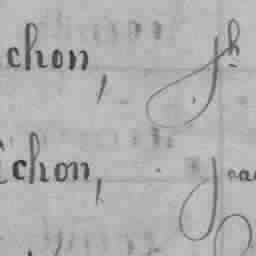 chon, Jh
ichon, Jea